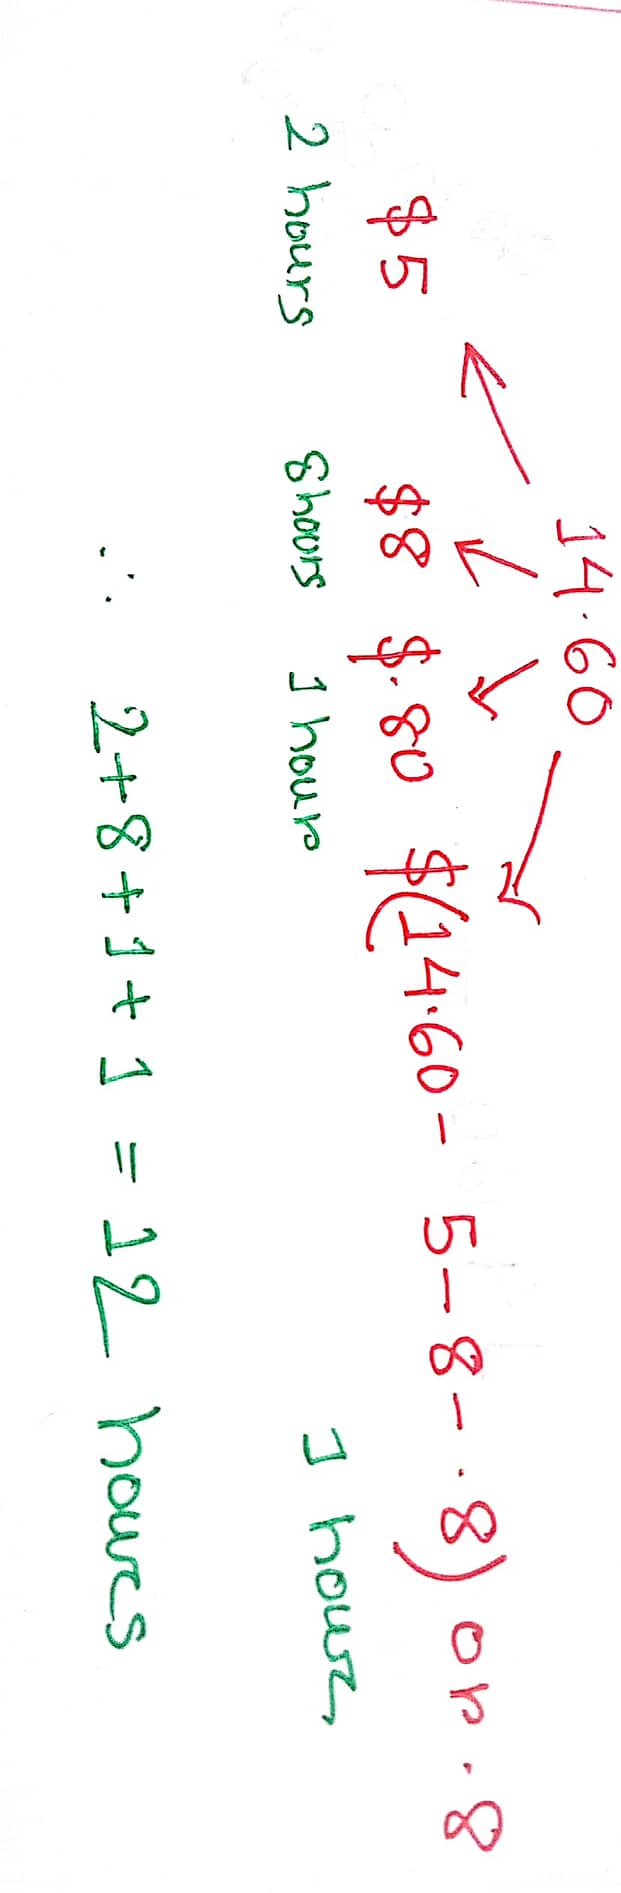 14.60
$5 $8 $.80 $(14.60 - 5 - 8 - .8) or .8
2 hours 8hours 1 hour 1 hour
∴ 2+8+1+1 = 12 hours